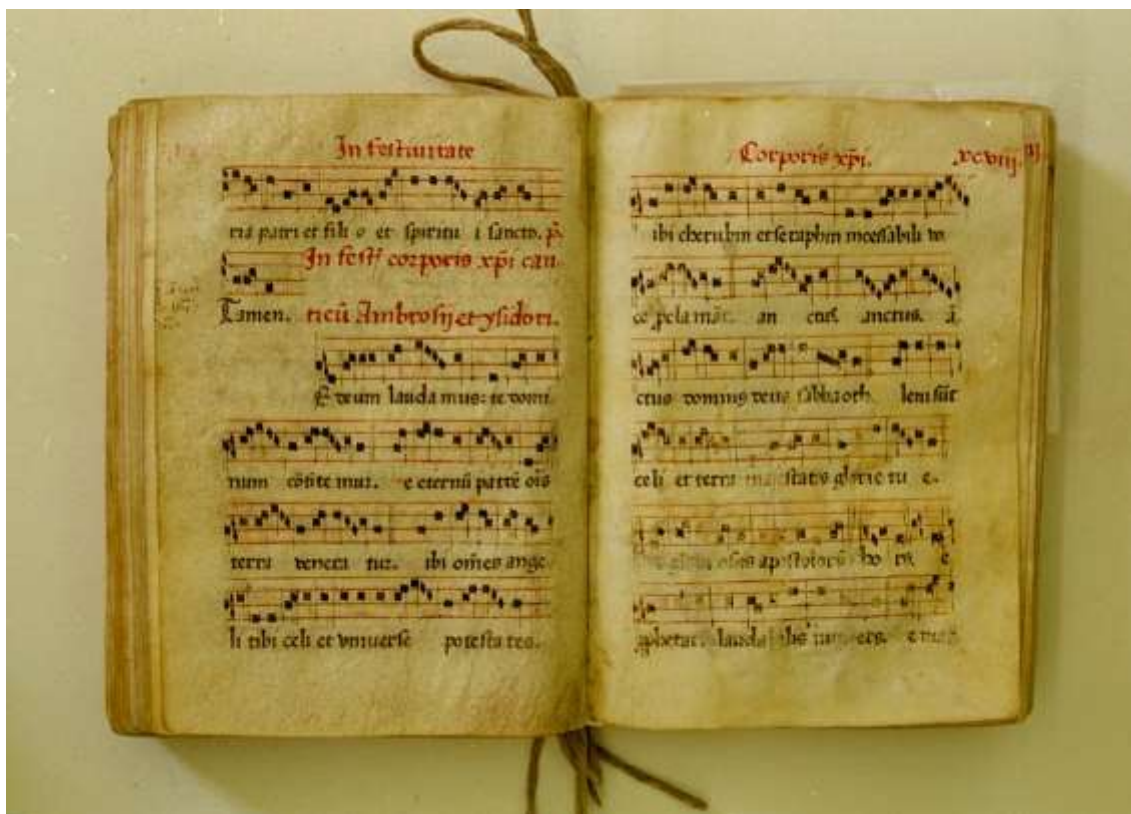 In festiuitate
ria patri et fili o et spiritu i sancto. p̄.
In fest᷑ corporis xp̄i can-
Tamen. ticū Ambrosij et ysidori.
E deum lauda mus: te domi
num cōfite mur. e eternū patrē oīs
terra venera tur. ibi om̄es ange
li tibi celi et vniuerse potesta tes.
Corporis xp̄i. .xcviij.
ibi cherubin et seraphin incessabili vo
ce pclamāt. an ctus. anctus. ā
ctus dominus deus sabbaoth. leni sūt
celi et terra maiestatis glorie tu e.
apostolorū cho rus e
pphetar. lauda ilis numerus.